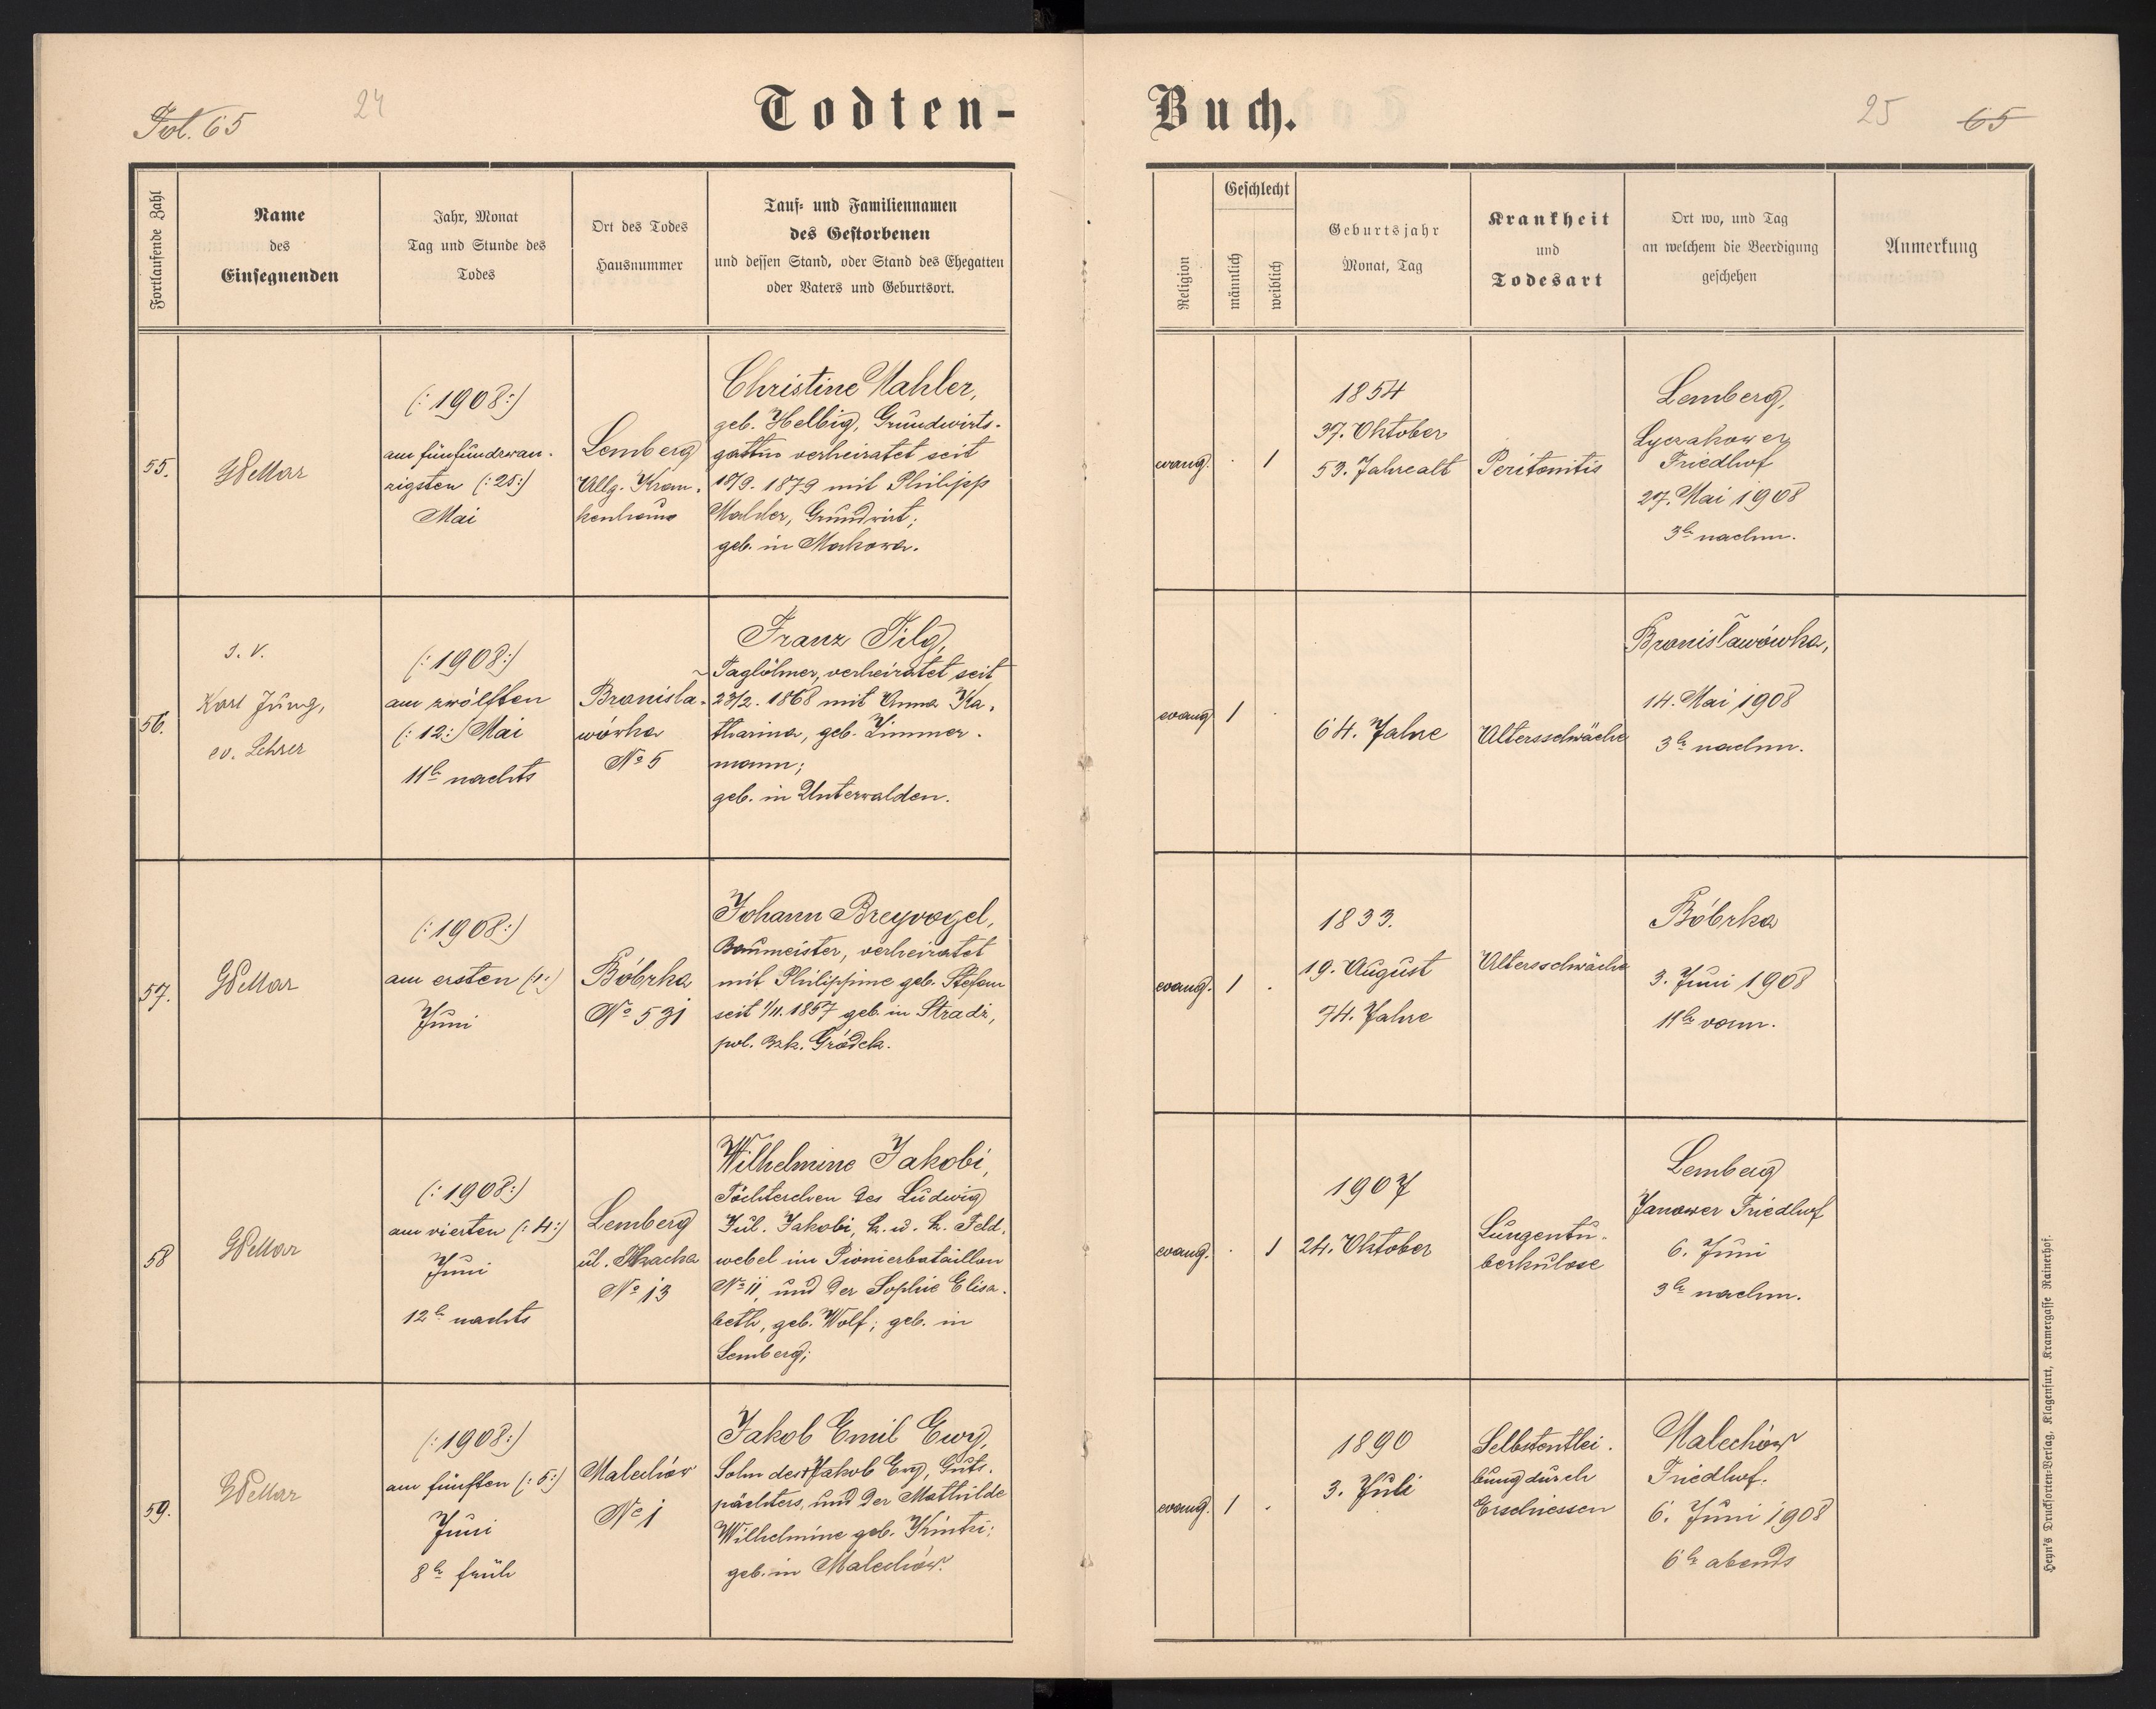 Fol. 65
24
Todten-
Buch.
25
65
Fortlaufende Zahl
Name
des
Einsegnenden
Jahr, Monat
Tag und Stunde des
Todes
Ort des Todes
Hausnummer
Tauf- und Familiennamen
des Gestorbenen
und dessen Stand, oder Stand des Ehegatten
oder Vaters und Geburtsort.
Religion
Geschlecht
männlich
weiblich
Geburtsjahr
Monat, Tag
Krankheit
und
Todesart
Ort wo, und Tag
an welchem die Beerdigung
geschehen
Anmerkung
55.
(: 1908 :)
am fünfundzwan-
zigsten (: 25 :)
Mai
Lemberg
Allg. Kran-
kenhaus
Christine Mahler,
geb. Helbig, Grundwirts-
gattin verheiratet seit
1879 mit Philipp
Mahler, Grundwirt;
geb. in Makowa.
evang.
.
1
1854
Oktober
53. Jahre alt
Peritonitis
Lemberg,
Lyczakower
Friedhof
27. Mai 1908
3h nachm.
56.
s. V.
Karl Jung,
ev. Lehrer
(: 1908 :)
am zwölften
(: 12 :) Mai
11h nachts
Bronisla-
wówka
No 5
Franz Filg,
Taglöhner, verheiratet seit
23/2. 1868 mit Anna Ka-
tharina, geb. Zimmer-
mann;
geb. in Unterwalden.
evang.
1
.
64. Jahre
Altersschwäche
Bronisławówka,
14. Mai 1908
3h nachm.
57.
(: 1908 :)
am ersten (: 1 :)
Juni
Bóbrka
No 531
Johann Breyvogel,
Baumeister, verheiratet
mit Philippine geb. Stefan
seit 1/11. 1857 geb. in Stradz,
pol. Bzk. Gródek.
evang.
1
.
1833.
19. August
74. Jahre
Altersschwäche
Bóbrka
3. Juni 1908
11h vorm.
58
(: 1908 :)
am vierten (: 4 :)
Juni
12h nachts
Lemberg
ul.
No 13
Wilhelmine Jakobi,
Töchterchen des Ludwig
Jul. Jakobi, k. u. k. Feld-
webel im Pionierbataillon
No 11, und der Sophie Elisa-
beth, geb. Wolf; geb. in
Lemberg;
evang.
.
1
1907
24. Oktober
Lungentu-
berkulose
Lemberg
Janower Friedhof
6. Juni
3h nachm.
59.
(: 1908 :)
am fünften (: 5 :)
Juni
8h früh
Malechów
No 1
Jakob Emil Ewy,
Sohn des † Jakob Ewy, Guts-
pächters, und der Mathilde
Wilhelmine geb. Kintzi;
geb. in Malechów.
evang.
1
.
1890
3. Juli
Selbstentlei-
bung durch
Erschiessen
Malechów
Friedhof.
6. Juni 1908
6h abends
Heyn's Drucksorten-Verlag, Klagenfurt, Kramergasse Rainerhof.